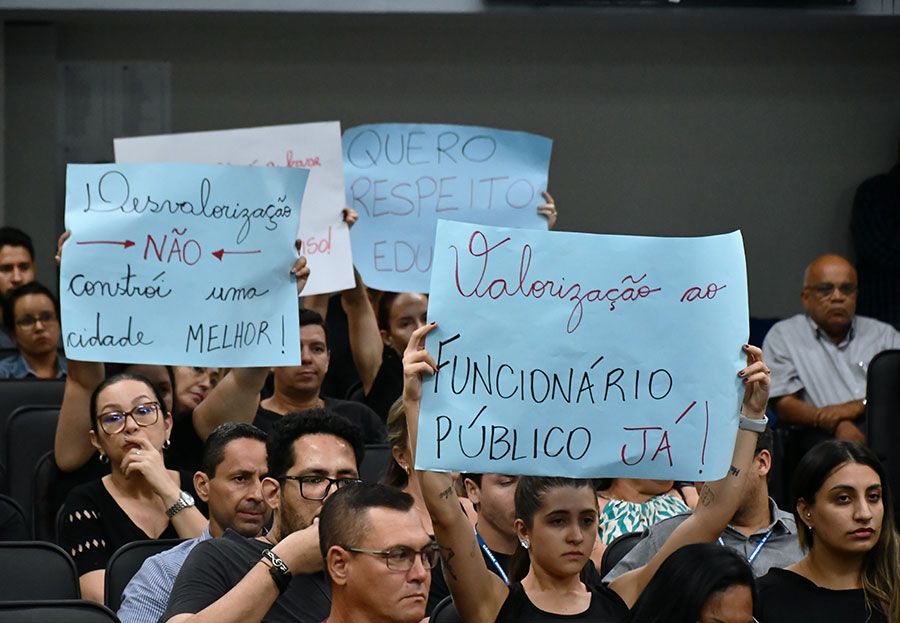 Desvalorização
NÃO
constrói uma
cidade MELHOR!
QUERO
RESPEITO
EDU
Valorização ao
FUNCIONÁRIO
PÚBLICO JÁ!